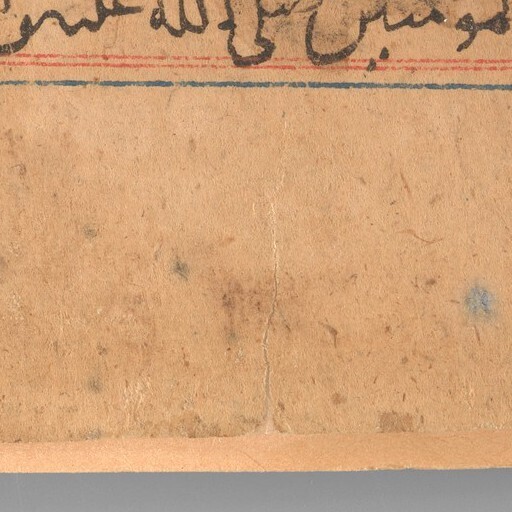 المومنين صلى الله عليه